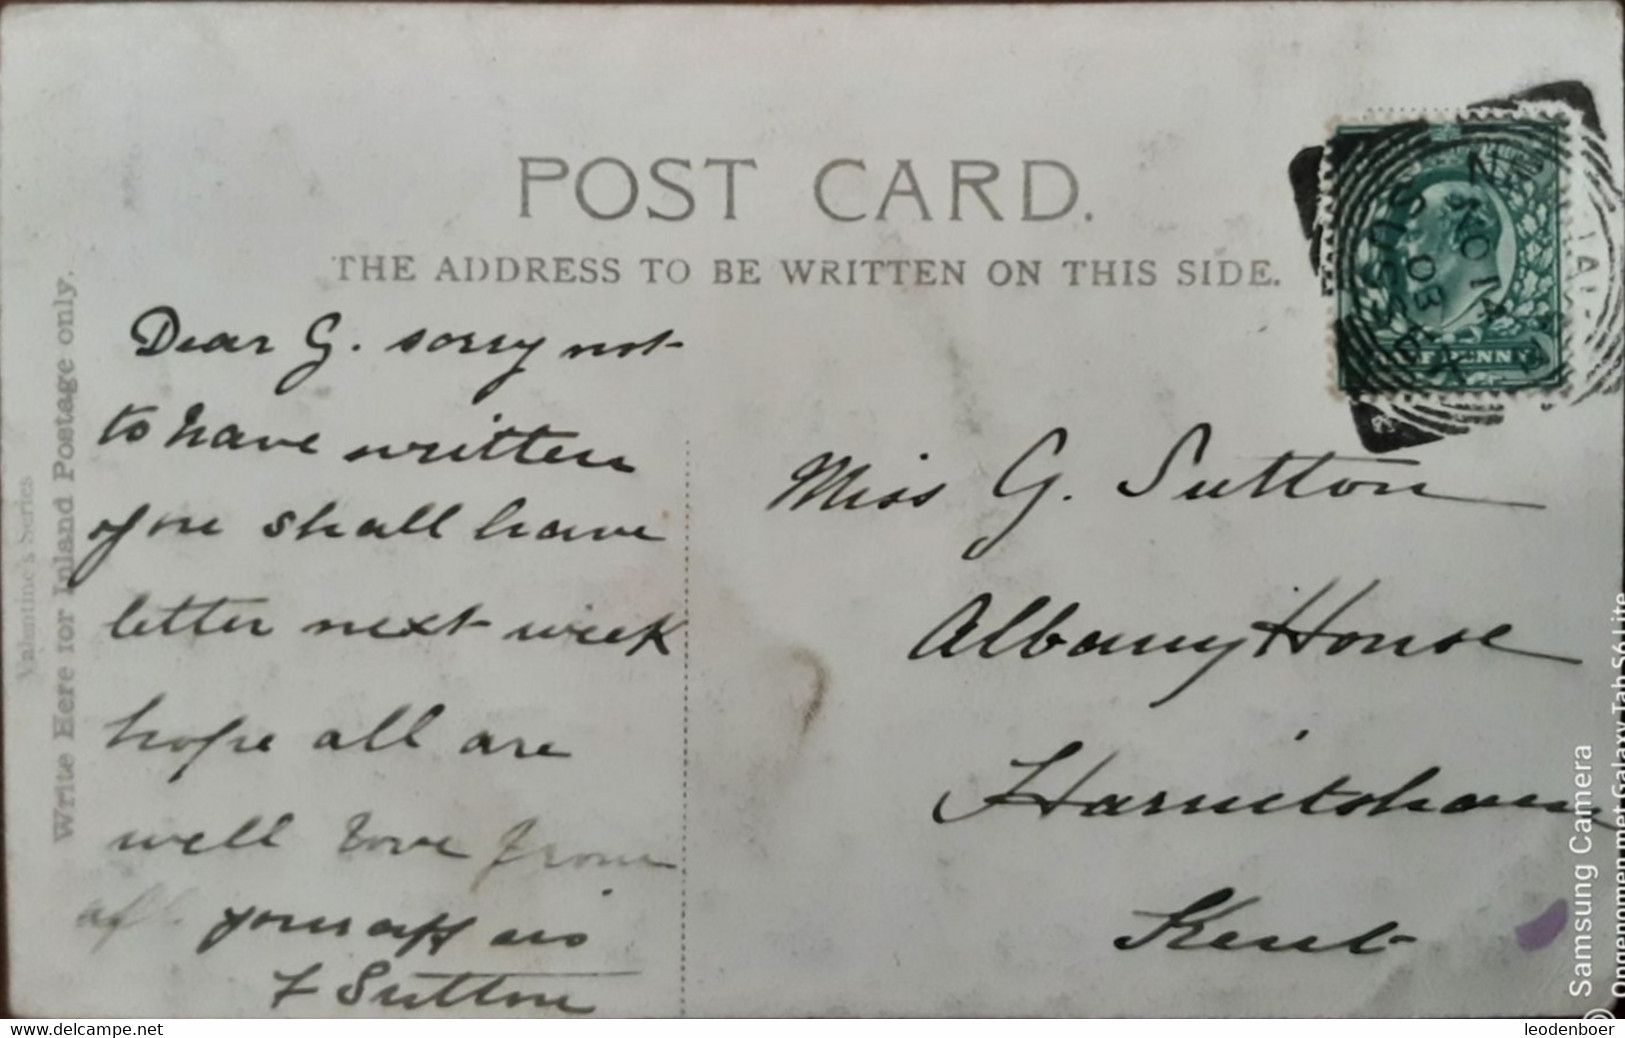 POST CARD.
THE ADDRESS TO BE WRITTEN ON THIS SIDE.
Valentine's Series
Write Here for Inland Postage only.
Dear G. sorry not
to have written
you shall have
letter next week
hope all are
well love from
all your aff
F Sutton
Miss G. Sutton
Albany House
Harrietsham
Kent
NO 14
03
SUSSEX
HALF PENNY
Samsung Camera
Ongenomen met Galaxy Tab S6 Lite
www.delcampe.net
leodenboer